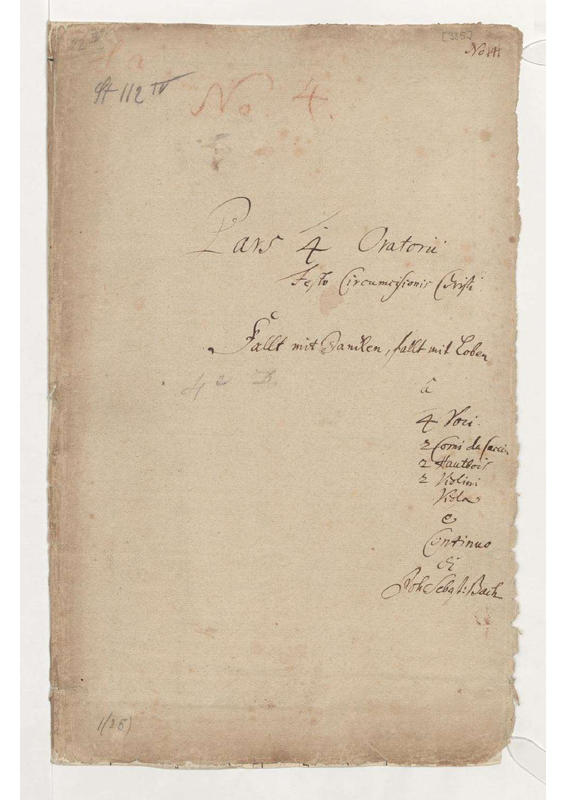 [385]
No 4
St 112 IV
No. 4.
Pars 4 Oratorii
Festo Circumcisionis Christi
Fallt mit Danken, fallt mit Loben
â
4 Voci.
2 Corni da Caccia
2 Hautbois
2 Violini
Viola
e
Continuo
di
Joh. Sebast: Bach